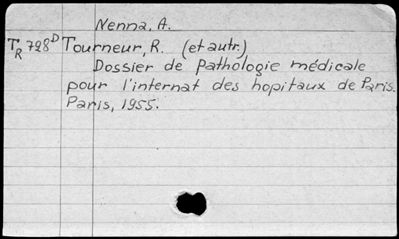 Nenna, A.
TR 728D Tourneur, R. (et autr.)
Dossier de pathologie médicale
pour l'internat des hopitaux de Paris.
Paris, 1955.